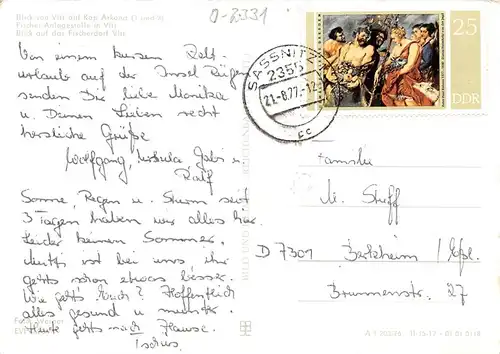 Blick von Vitt auf Kap Arkona (1 und 3)
Fischer-Anlegestelle in Vitt
Blick auf das Fischerdorf Vitt
0-2331
Von einem kurzen Zelt-
urlaub auf der Insel Rügen
senden Dir liebe Monika
u. Deinen Lieben recht
herzliche Grüße
Wolfgang, Gabi u.
Ralf
Sonne, Regen u. Sturm seit
3 Tagen haben wir alles hier.
Leider keinen Sommer.
Mutti ist bei uns ihr
gehts schon etwas besser.
Wie gehts Euch? Hoffentlich
alles gesund u. munter.
Heute gehts nach Hause.
Tschüs
SASSNITZ
2355
21.-8.77.-12
25
DDR
Familie
M. Steff
D 7301 Berkheim / Eßl.
Brunnenstr. 27